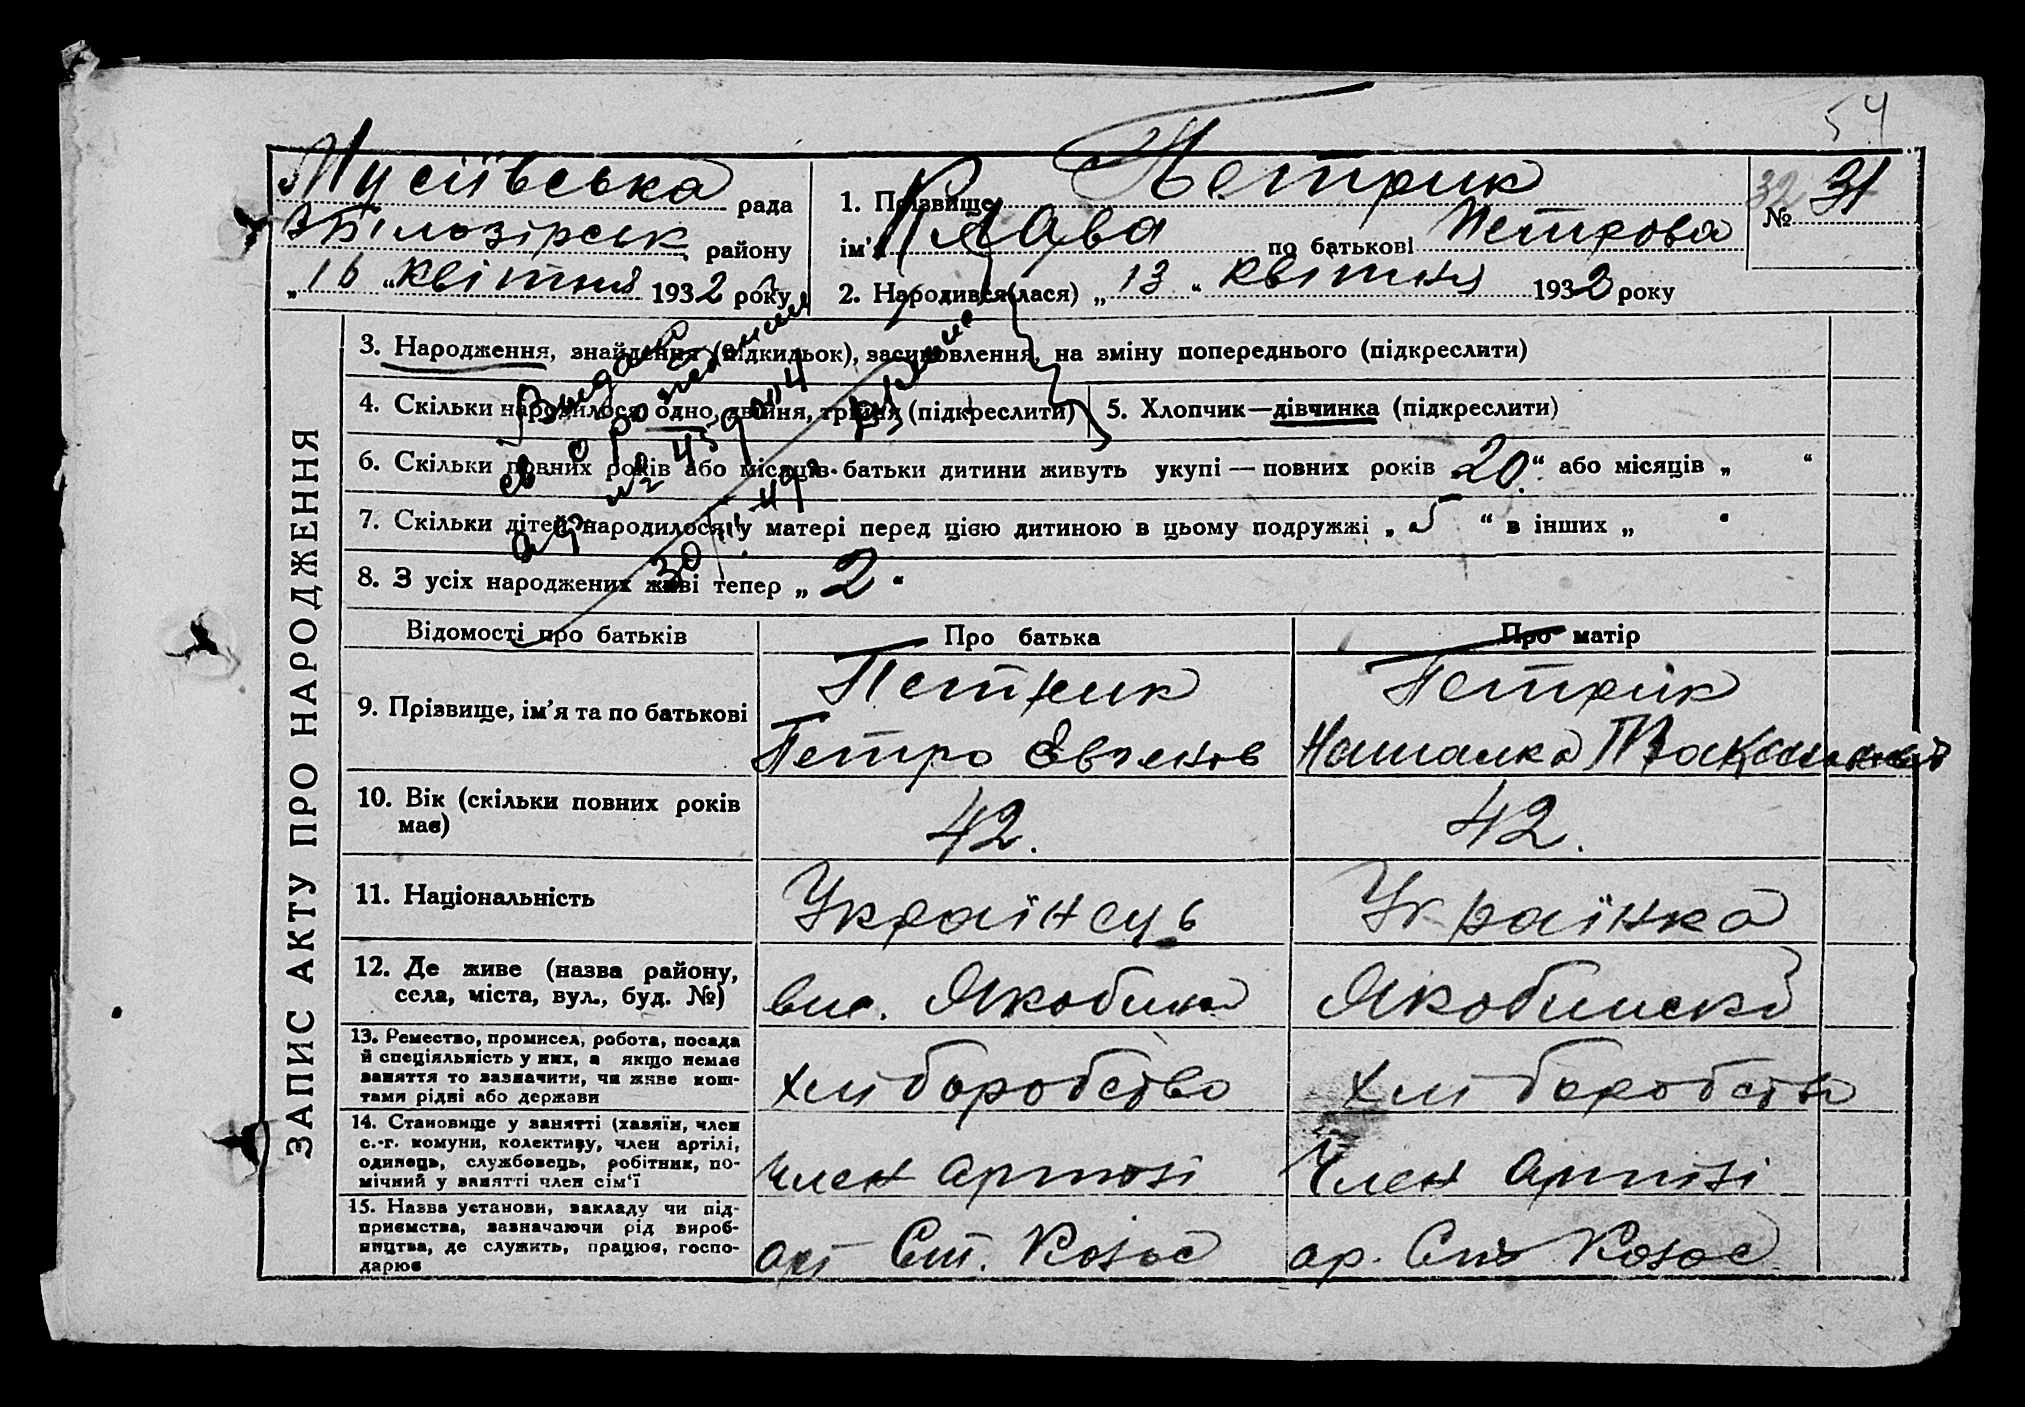 54
Мусіївська рада
Білозірськ району
„16“ квітня 1932 року
1. Прізвище Петрик
ім'я Клава по батькові Петрова
№ 32 31
2. Народився(лася) „13“ квітня 1932 року
ЗАПИС АКТУ ПРО НАРОДЖЕННЯ
3. Народження, знайдення (підкидьок), засиновлення, на зміну попереднього (підкреслити)
4. Скільки народилося: одно, двійня, трійня (підкреслити)
5. Хлопчик—дівчинка (підкреслити)
6. Скільки повних років або місяців батьки дитини живуть укупі — повних років 20 “ або місяців „ “
7. Скільки дітей народилося у матері перед цією дитиною в цьому подружжі „ 5 “ в інших „ “
8. З усіх народжених живі тепер „ 2 “
Видано
№
Відомості про батьків
Про батька
Про матір
9. Прізвище, ім'я та по батькові
Петрик
Петро
Петрик
Наталка
10. Вік (скільки повних років має)
42.
42.
11. Національність
Українець
Українка
12. Де живе (назва району, села, міста, вул., буд. №)
13. Ремество, промисел, робота, посада
й спеціяльність у них, а якщо немає
заняття то зазначити, чи живе кош-
тами рідні або держави
хліборобство
хліборобство
14. Становище у занятті (хазяїн, член
с.-г. комуни, колективу, член артілі,
одинець, службовець, робітник, по-
мічний у занятті член сім'ї
Член артілі
Член артілі
15. Назва установи, закладу чи під-
приємства, зазначаючи рід вироб-
ництва, де служить, працює, госпо-
дарює
арт
ар.